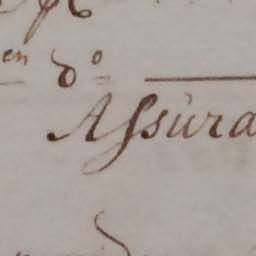 en d°
Assura